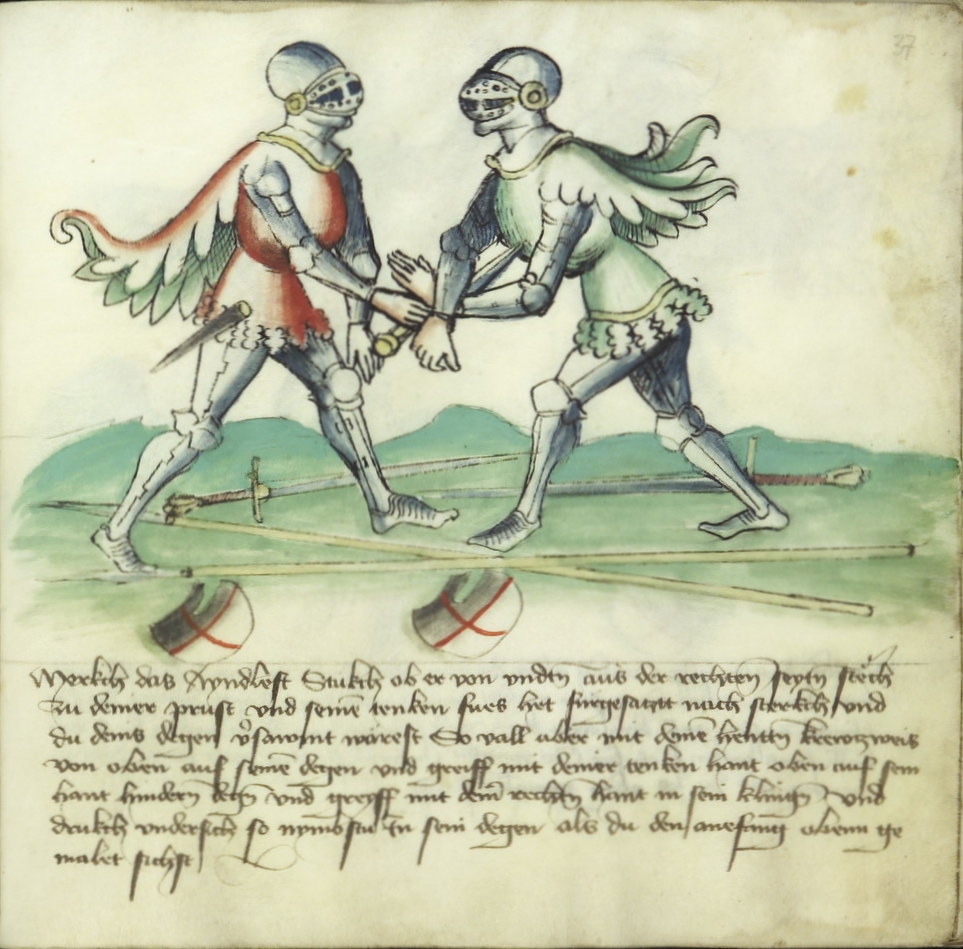 37
Merkch das Ayndleft Stukch ob er von vndtn̄ aus der rechten seytn stech
zu deiner prust vnd seinē tenken fues het fürgesatzt nach sterkch vnd
du deins degen v̊sawmt wärest So vall aber mit deinē henttn̄ krewtzweis
von obenn auf seinē degen vnd greiff mit deiner tenken hant oben auf sein
hant hindern degn̄ vnd greyff mit deiň rechtn̄ hant in sein klingn̄ vnd
drukch vndersich so nymbstu Im sein degen als du den anefang obenn ge
malet sichst